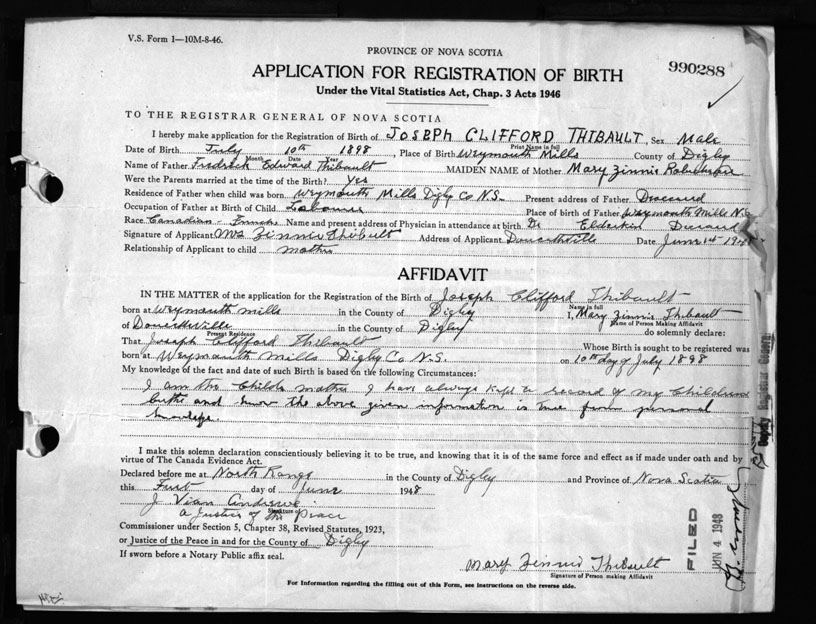 V.S. Form 1—10M-8-46.
PROVINCE OF NOVA SCOTIA
990288
APPLICATION FOR REGISTRATION OF BIRTH
Under the Vital Statistics Act, Chap. 3 Acts 1946
TO THE REGISTRAR GENERAL OF NOVA SCOTIA
I hereby make application for the Registration of Birth of JOSEPH CLIFFORD THIBAULT, Sex Male
Print Name in full
Date of Birth July 10th 1898, Place of Birth Weymouth Mills County of Digby
Month Date Year
Name of Father Edward Thibault MAIDEN NAME of Mother Mary Zinnie
Were the Parents married at the time of the Birth? Yes
Residence of Father when child was born Weymouth Mills Digby Co N.S. Present address of Father Deceased
Occupation of Father at Birth of Child Place of birth of Father Weymouth Mills N.S.
Race Canadian - French Name and present address of Physician in attendance at birth Dr Elderkin
Signature of Applicant Mrs Zinnie Thibault Address of Applicant Doucetteville Date June 1st 1948
Relationship of Applicant to child mother
AFFIDAVIT
IN THE MATTER of the application for the Registration of the Birth of Joseph Clifford Thibault
Name in full
born at Weymouth mills in the County of Digby I, Mary Zinnie Thibault
Name of Person Making Affidavit
of Doucetteville in the County of Digby do solemnly declare:
Present Residence
That Joseph Clifford Thibault Whose Birth is sought to be registered was
born at Weymouth Mills Digby Co N.S. on 10th day of July 1898
My knowledge of the fact and date of such Birth is based on the following Circumstances:
I am the Childs mother I have always kept a record of my Childrens
births and know the above given information is true from personal
knowledge.
I make this solemn declaration conscientiously believing it to be true, and knowing that it is of the same force and effect as if made under oath and by
virtue of The Canada Evidence Act.
Declared before me at North Range in the County of Digby and Province of Nova Scotia
this First day of June 1948
J. Andrews
Signature
a Justice of the Peace
Commissioner under Section 5, Chapter 38, Revised Statutes, 1923,
or Justice of the Peace in and for the County of Digby
If sworn before a Notary Public affix seal.
Mary Zinnie Thibault
Signature of Person making Affidavit
For Information regarding the filling out of this Form, see instructions on the reverse side.
FILED
JUN 4 1948
Deputy Registrar General